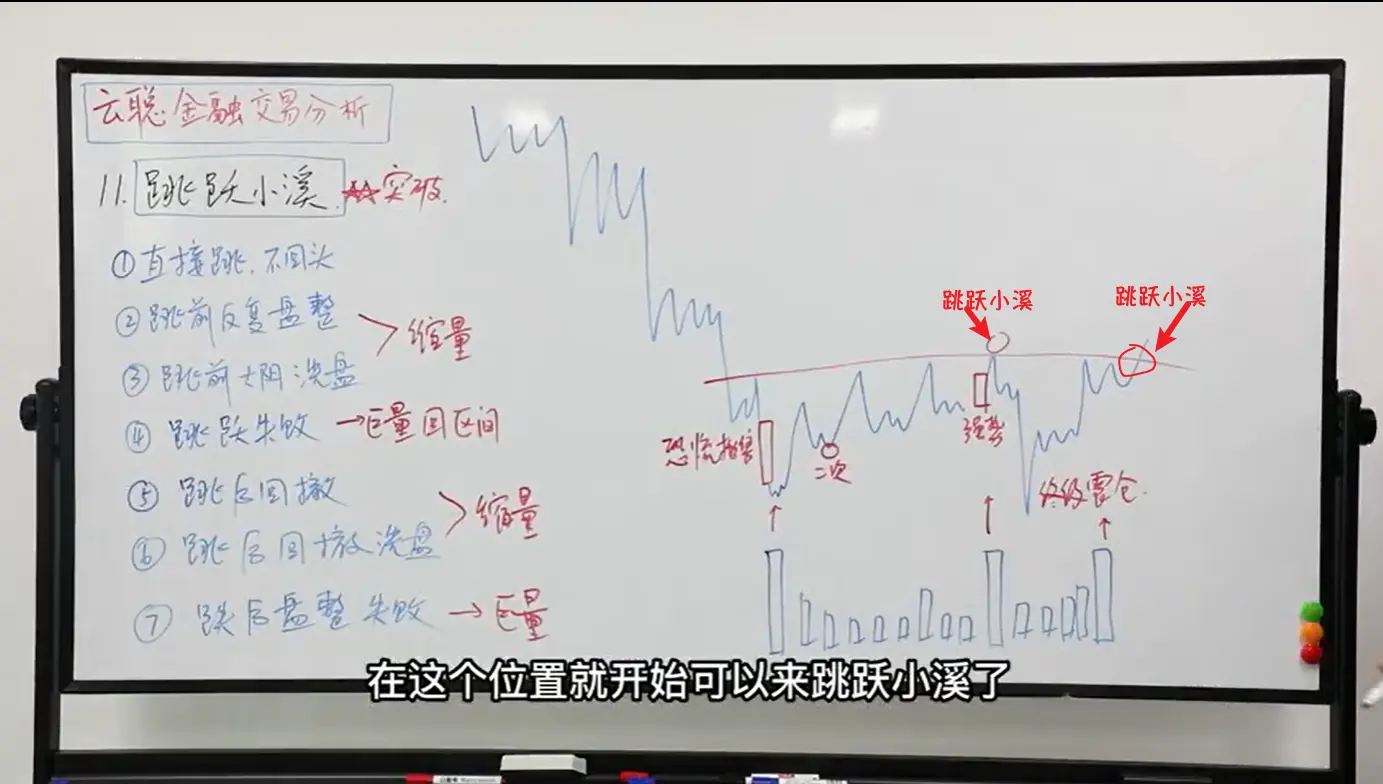 云聪金融交易分析
11. 跳跃小溪 突破.
① 直接跳，不回头
② 跳前反复盘整
缩量
③ 跳前大阴洗盘
④ 跳跃失败 → 巨量回区间
⑤ 跳后回撤
缩量
⑥ 跳后回撤洗盘
⑦ 跌后盘整失败 → 巨量
跳跃小溪
跳跃小溪
恐慌抛售
二次
强势
终级震仓.
在这个位置就开始可以来跳跃小溪了